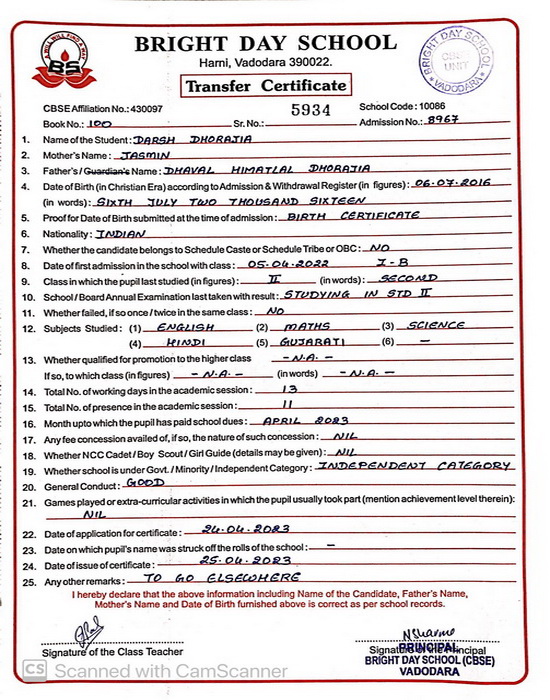 A WILL WILL FIND A WAY
BS
BRIGHT DAY SCHOOL
Harni, Vadodara 390022.
BRIGHT DAY SCHOOL
CBSE
UNIT
VADODARA
Transfer Certificate
CBSE Affiliation No.: 430097 5934 School Code : 10086
Book No.: 100 Sr. No.: Admission No.: 8967
1. Name of the Student : DARSH DHORAJIA
2. Mother's Name : JASMIN
3. Father's / Guardian's Name : DHAVAL HIMATLAL DHORAJIA
4. Date of Birth (in Christian Era) according to Admission & Withdrawal Register (in figures) : 06-07-2016
(in words) : SIXTH JULY TWO THOUSAND SIXTEEN
5. Proof for Date of Birth submitted at the time of admission : BIRTH CERTIFICATE
6. Nationality : INDIAN
7. Whether the candidate belongs to Schedule Caste or Schedule Tribe or OBC : NO
8. Date of first admission in the school with class : 05-04-2022 I-B
9. Class in which the pupil last studied (in figures) : II (in words) : SECOND
10. School / Board Annual Examination last taken with result : STUDYING IN STD II
11. Whether failed, if so once / twice in the same class : NO
12. Subjects Studied : (1) ENGLISH (2) MATHS (3) SCIENCE
(4) HINDI (5) GUJARATI (6) -
13. Whether qualified for promotion to the higher class - N.A. -
If so, to which class (in figures) - N.A. - (in words) - N.A. -
14. Total No. of working days in the academic session : 13
15. Total No. of presence in the academic session : 11
16. Month upto which the pupil has paid school dues : APRIL 2023
17. Any fee concession availed of, if so, the nature of such concession : NIL
18. Whether NCC Cadet / Boy Scout / Girl Guide (details may be given) : NIL
19. Whether school is under Govt. / Minority / Independent Category : INDEPENDENT CATEGORY
20. General Conduct : GOOD
21. Games played or extra-curricular activities in which the pupil usually took part (mention achievement level therein) :
NIL
22. Date of application for certificate : 24-04-2023
23. Date on which pupil's name was struck off the rolls of the school : -
24. Date of issue of certificate : 25-04-2023
25. Any other remarks : TO GO ELSEWHERE
I hereby declare that the above information including Name of the Candidate, Father's Name,
Mother's Name and Date of Birth furnished above is correct as per school records.
Signature of the Class Teacher Signature of the Principal
PRINCIPAL
BRIGHT DAY SCHOOL (CBSE)
VADODARA
CS Scanned with CamScanner